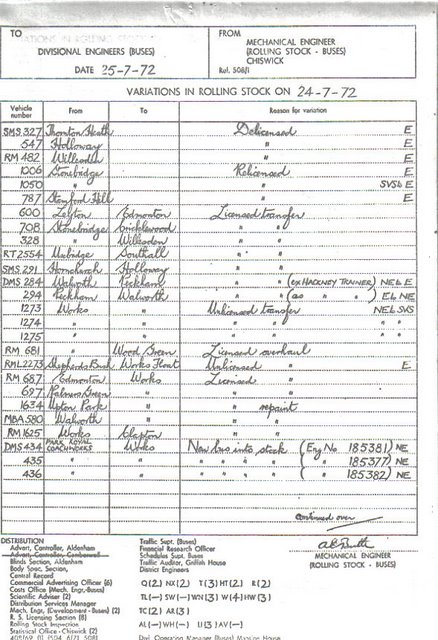 TO
FROM
DIVISIONAL ENGINEERS (BUSES)
MECHANICAL ENGINEER
(ROLLING STOCK - BUSES)
CHISWICK
DATE 25-7-72
Ref. 508/1
VARIATIONS IN ROLLING STOCK ON 24-7-72
Vehicle number From To Reason for variation
SMS 327 Thornton Heath Delicensed E
547 Holloway " E
RM 482 Willesden " E
1006 Stonebridge Relicensed E
1050 " " SVS & E
787 Stamford Hill " E
600 Leyton Edmonton Licensed transfer
708 Stonebridge Cricklewood " "
328 " Willesden " "
RT 2554 Uxbridge Southall " "
SMS 291 Hornchurch Holloway " "
DMS 284 Walworth Peckham " " (ex HACKNEY TRAINER) NE & E
294 Peckham Walworth " " (as " ) E & NE
1273 Works " Unlicensed transfer NE & SVS
1274 " " " " " "
1275 " " " " " "
RM 681 " Wood Green Licensed overhaul
RML 2273 Shepherds Bush Works Float Unlicensed " E
RM 687 Edmonton Works Licensed "
697 Palmers Green " " "
1634 Upton Park " " repaint
MBA 580 Walworth " " "
RM 1625 Works Clapton " "
DMS 434 PARK ROYAL COACHWORKS Works New bus into stock (Eng No 185381) NE
435 " " " " " " ( " 185377) NE
436 " " " " " " ( " 185382) NE
continued over
DISTRIBUTION
Advert. Controller, Aldenham
Advert. Controller, Camberwell
Blinds Section, Aldenham
Body Spec. Section,
Central Record
Commercial Advertising Officer (6)
Costs Office (Mech. Engr. Buses)
Scientific Adviser (2)
Distribution Services Manager
Mech. Engr. (Development - Buses) (2)
R. S. Licensing Section (8)
Rolling Stock Inspection
Statistical Office - Chiswick (2)
Traffic Supt. (Buses)
Financial Research Officer
Schedules Supt. Buses
Traffic Auditor, Griffith House
District Engineers
Q(2) NX(2) T(3) HT(2) R(2)
TL(-) SW(-) WN(3) W(4) HW(3)
TC(2) AR(3)
AL(-) WH(-) U(3) AV(-)
MECHANICAL ENGINEER
(ROLLING STOCK - BUSES)